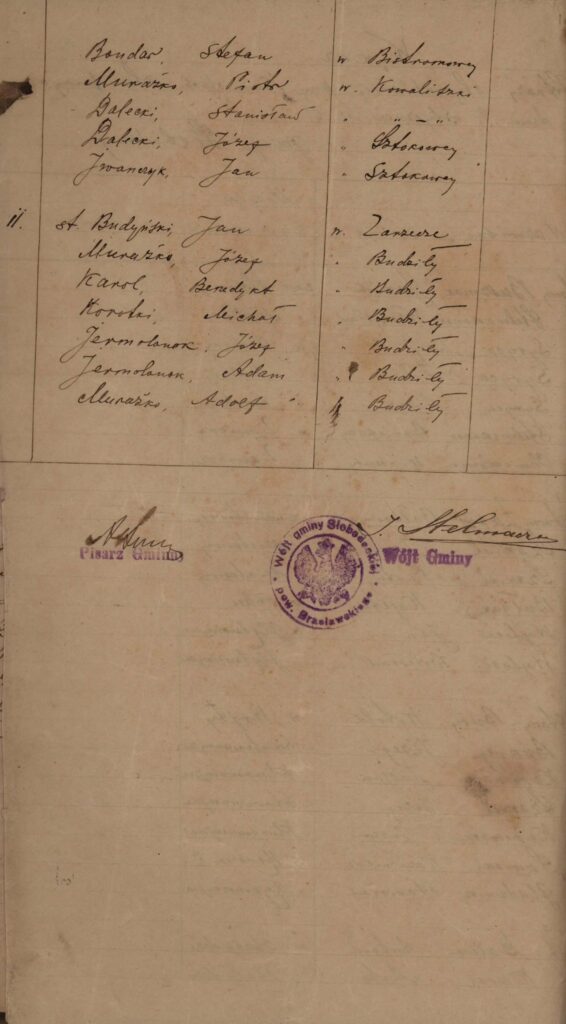 Bondar, Stefan w. Bistromowcy
Murażko, Piotr w. Kowaliszki
Dalecki, Stanisław " " – "
Dalecki, Józef " Sztokowcy
Iwańczyk, Jan " Sztokowcy
11. st. Budyński, Jan w. Zarzecze
Murażko, Józef " Budziły
Karol, Benedykt " Budziły
Korotki, Michał " Budziły
Jermolonok, Józef " Budziły
Jermolonok, Adam " Budziły
Murażko, Adolf " Budziły
Pisarz Gminy
Wójt gminy Słobodzkiej
pow. Brasławskiego
J. Stelmacz
Wójt Gminy